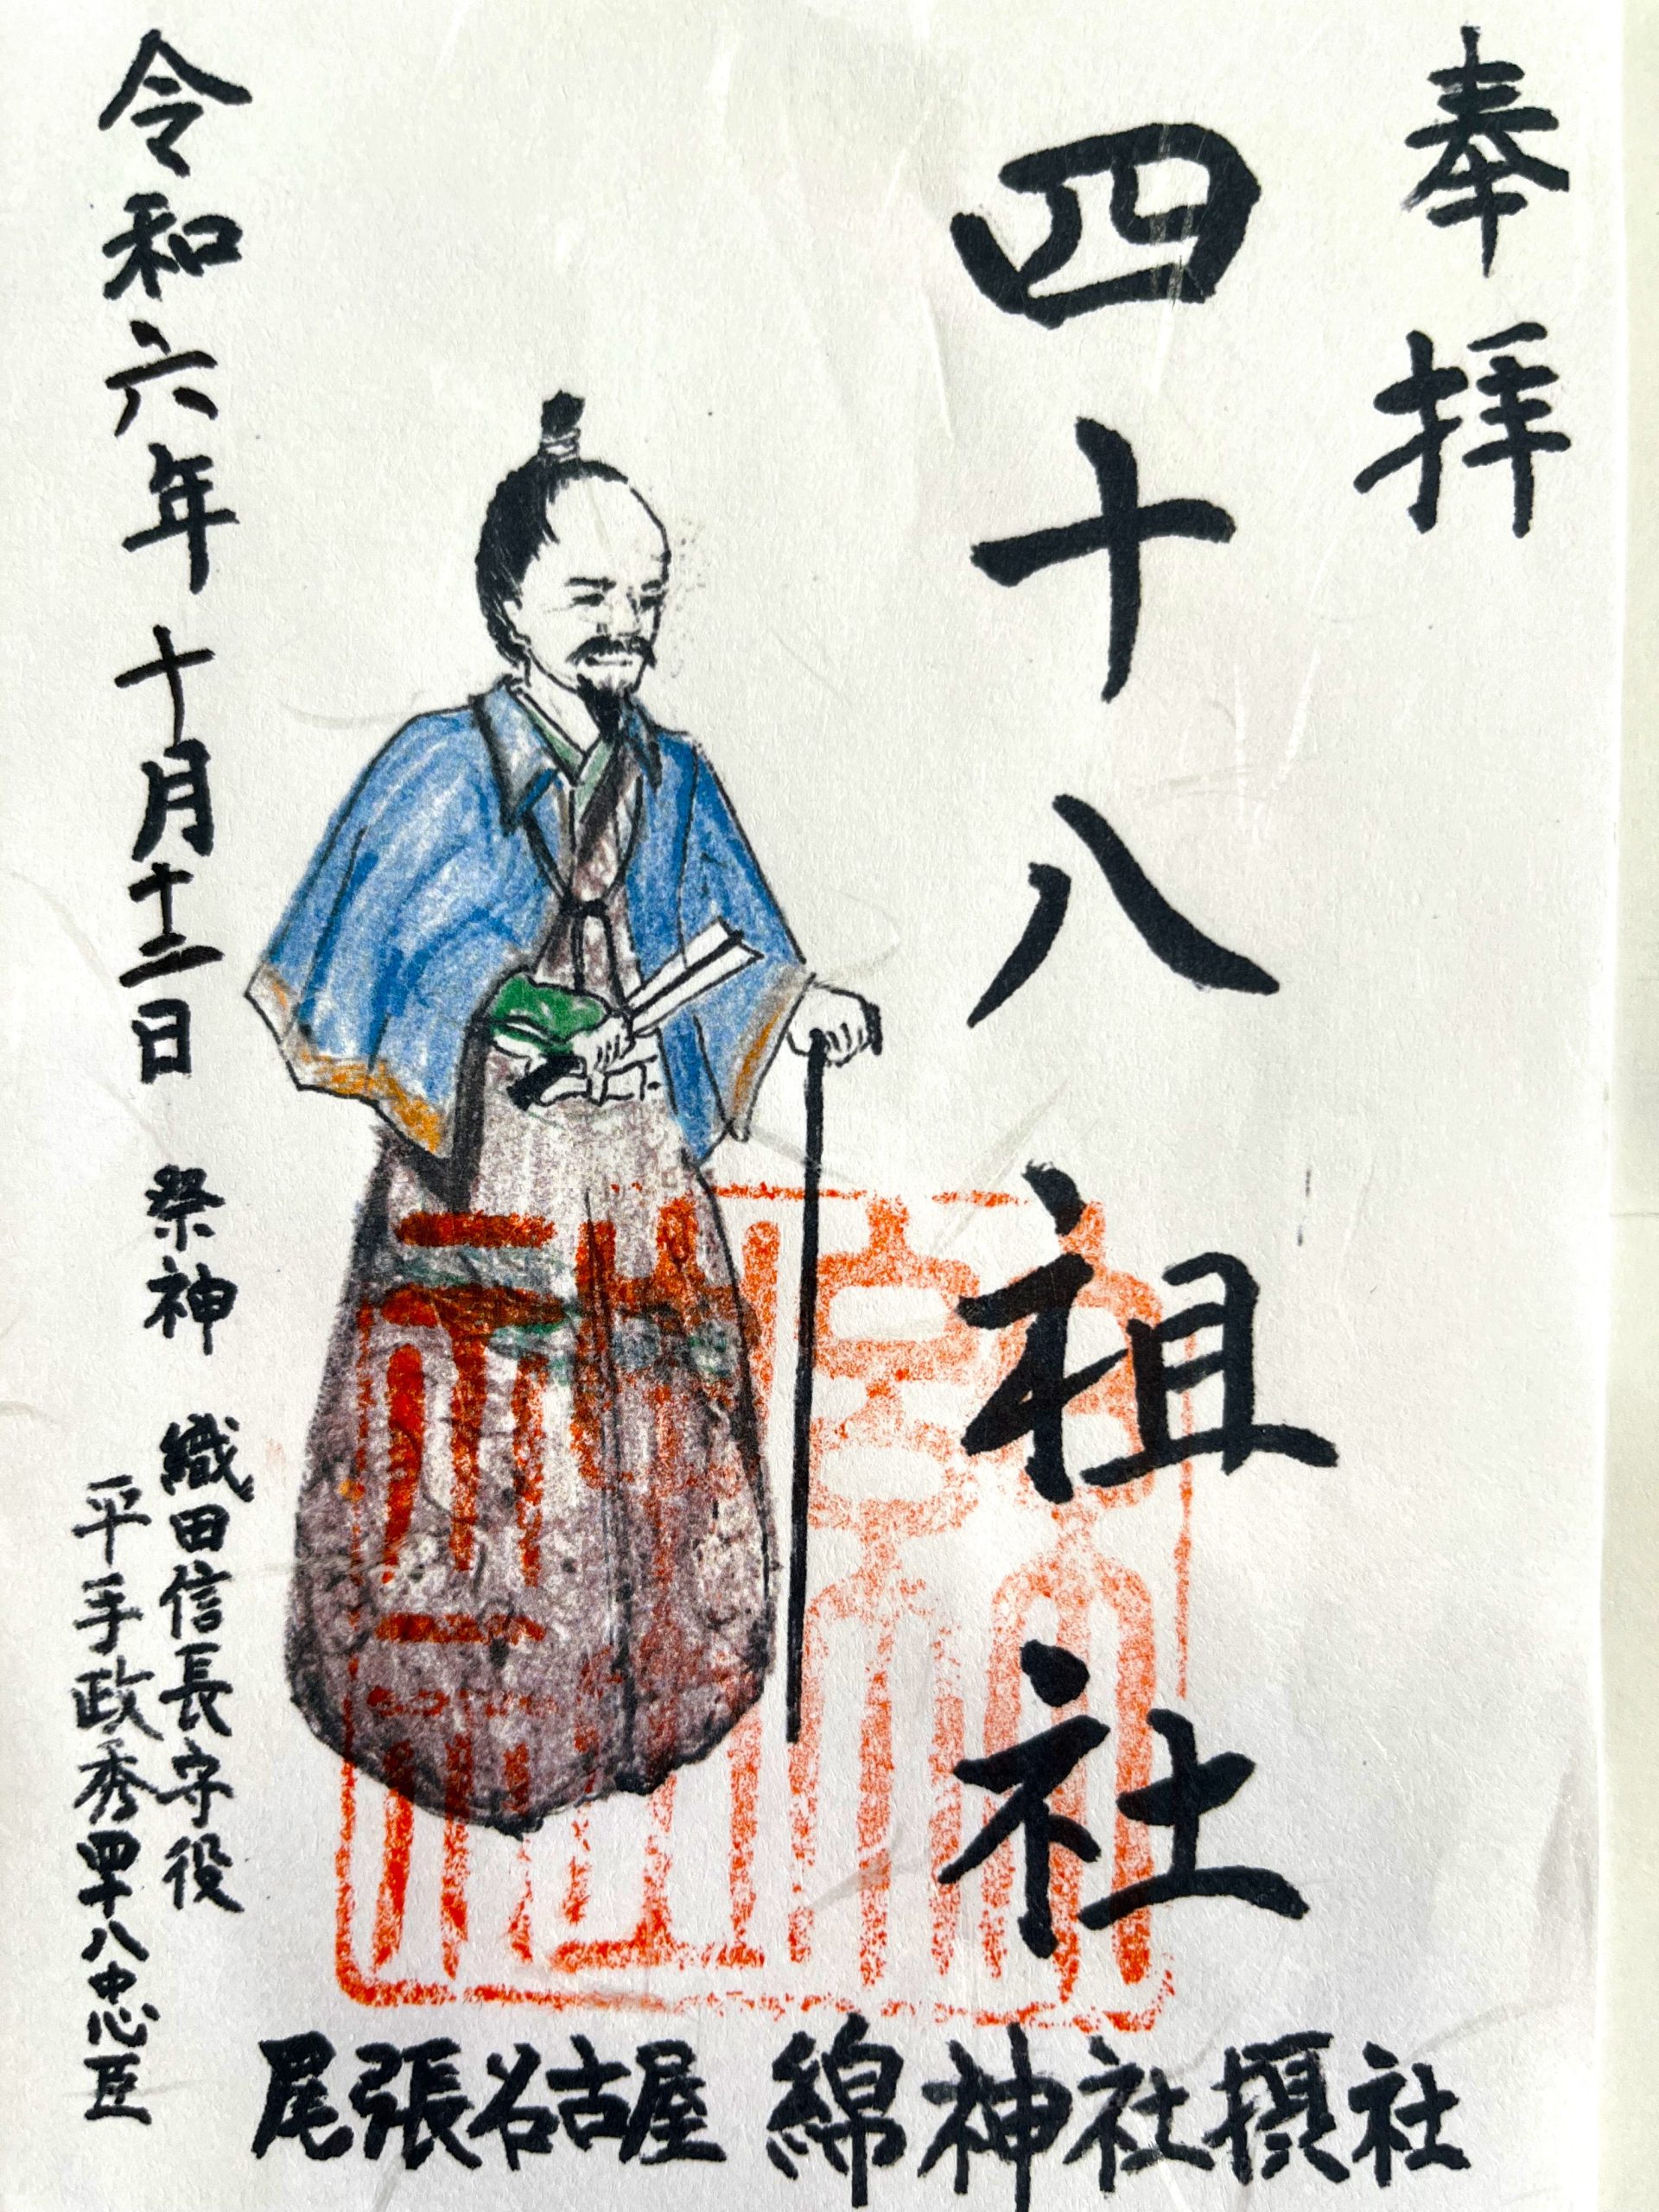 奉拝
四十八祖社
令和六年十月十二日 祭神 織田信長守役
平手政秀四十八忠臣
尾張名古屋 綿神社摂社